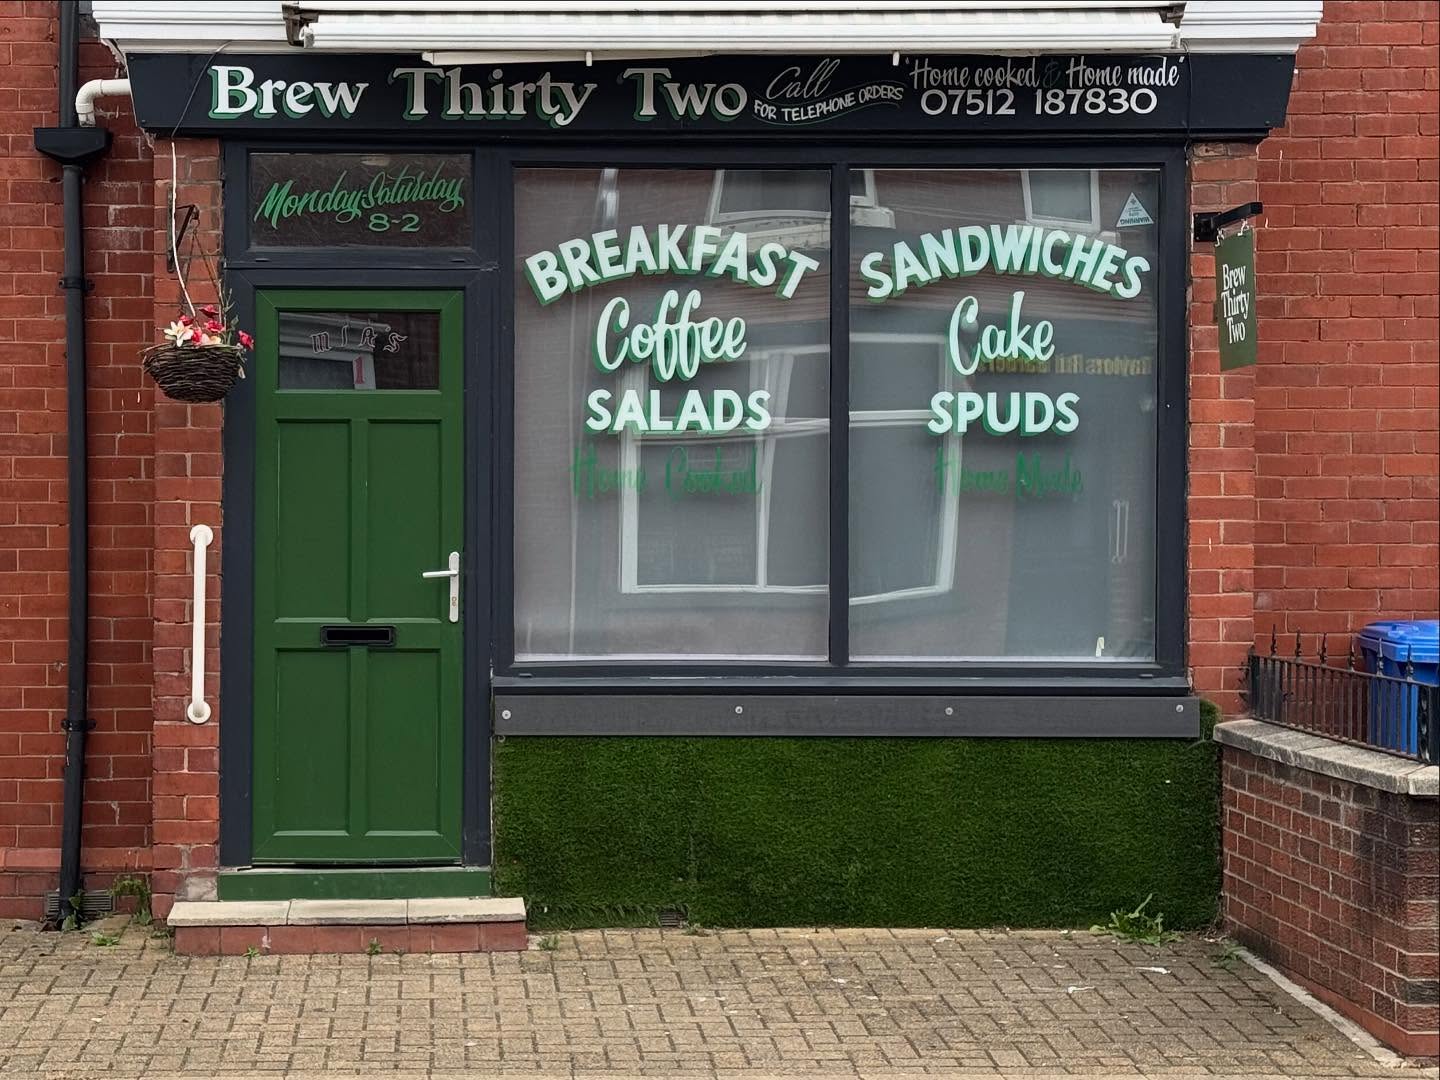 Brew Thirty Two
Call
FOR TELEPHONE ORDERS
"Home cooked & Home made"
07512 187830
Monday-Saturday
8-2
MIA'S
1
BREAKFAST
Coffee
SALADS
Home Cooked
SANDWICHES
Cake
SPUDS
Home Made
WARNING
Brew
Thirty
Two